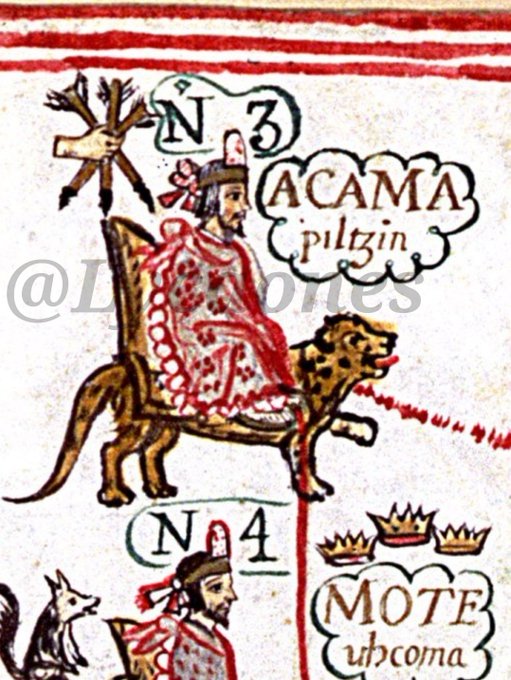 N 3
ACAMA
piltzin
N 4
MOTE
uhcoma